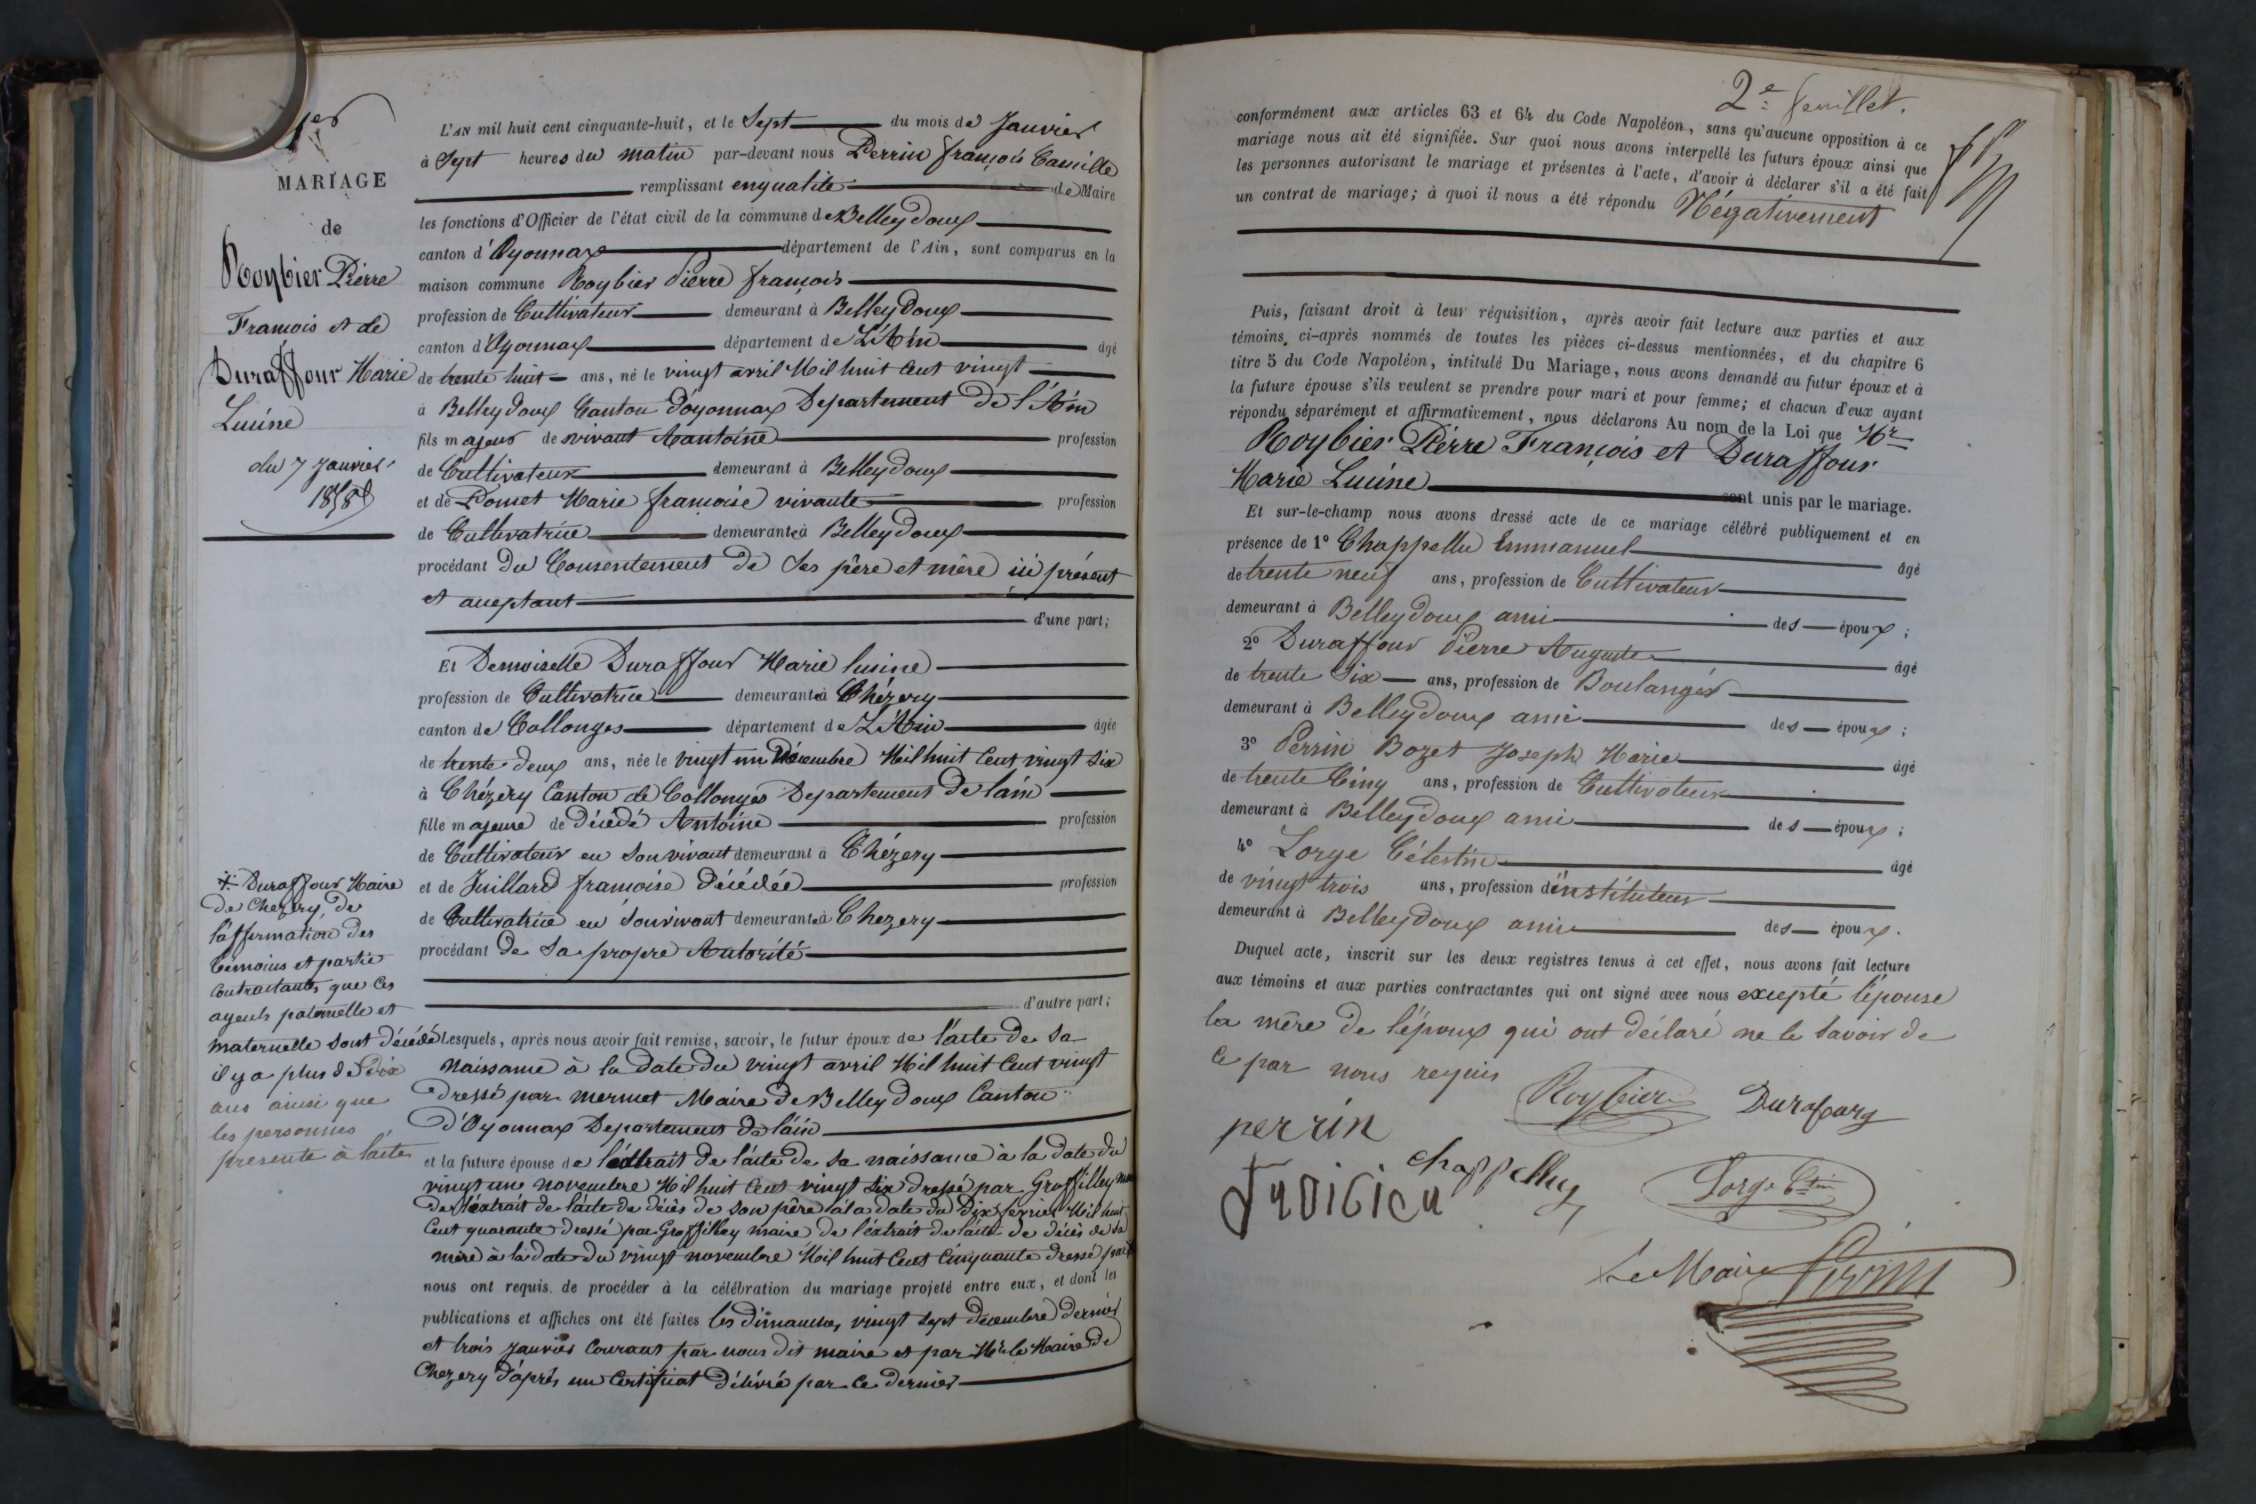 1er
MARIAGE
de
Roybier Pierre
François et de
Duraffour Marie
Lucine
du 7 Janvier
1858
L'AN mil huit cent cinquante-huit, et le Sept du mois de Janvier
à Sept heures du matin par-devant nous Perrin françois Camille
remplissant en qualité de Maire
les fonctions d'Officier de l'état civil de la commune de Belleydoux
canton d'Oyonnax département de l'Ain, sont comparus en la
maison commune Roybier Pierre françois
profession de Cultivateur demeurant à Belleydoux
canton d'Oyonnax département de L'Ain âgé
de trente huit ans, né le vingt avril Mil huit Cent vingt
à Belleydoux Canton d'oyonnax Departement De l'Ain
fils majeur de vivant Aantoine profession
de Cultivateur demeurant à Belleydoux
et de Pomet Marie françoise vivante profession
de Cultivatrice demeurante à Belleydoux
procédant du Consentement De Ses père et mère ici présent
et acceptant
d'une part;
Et Demoiselle Duraffour Marie lucine
profession de Cultivatrice demeurante à Chézery
canton de Collonges département de L'Ain âgée
de trente deux ans, née le vingt un Mil huit Cent vingt Six
à Chézery Canton de Collonges Departement De lain
fille majeure de décédé Antoine profession
de Cultivateur en Son vivant demeurant à Chézery
et de Juillard françoise Décédée profession
de Cultivatrice en Sonvivant demeurante à Chezery
procédant De Sa propre Autorité
d'autre part;
Lesquels, après nous avoir fait remise, savoir, le futur époux de l'acte De Sa
Naissance à la Date du vingt avril Mil huit Cent vingt
Dressé par Mermet Maire De Belleydoux Canton
D'Oyonnax Departement De lain
et la future épouse de l'extrait de l'acte de Sa naissance à la date du
vingt une novembre Mil huit Cent vingt Six dressé par Groffilley
De l'éxtrait de l'acte de décès de son père à la date du Dix février Mil huit
Cent quarante dressé par Groffilley maire de l'éxtrait de l'acte de décès de Sa
mère à la date du vingt novembre Mil huit Cent Cinquante dressé par
nous ont requis de procéder à la célébration du mariage projeté entre eux, et dont les
publications et affiches ont été faites les dimanches, vingt Sept decembre dernier
et trois Janvier Courant par nous dit maire et par Mr le Maire De
Chezery d'après un Certificat Délivré par Ce dernier
Duraffour Maire
De Chezery, de
l'affirmation des
témoins et partie
Contractants, que Ces
ayeuls paternelle et
maternelle sont décédé
il y a plus de Dix
ans ainsi que
les personnes
presente à l'acte
2e feuillet.
conformément aux articles 63 et 64 du Code Napoléon, sans qu'aucune opposition à ce
mariage nous ait été signifiée. Sur quoi nous avons interpellé les futurs époux ainsi que
les personnes autorisant le mariage et présentes à l'acte, d'avoir à déclarer s'il a été fait
un contrat de mariage; à quoi il nous a été répondu Négativement
Puis, faisant droit à leur réquisition, après avoir fait lecture aux parties et aux
témoins, ci-après nommés de toutes les pièces ci-dessus mentionnées, et du chapitre 6
titre 5 du Code Napoléon, intitulé Du Mariage, nous avons demandé au futur époux et à
la future épouse s'ils veulent se prendre pour mari et pour femme; et chacun d'eux ayant
répondu séparément et affirmativement, nous déclarons Au nom de la Loi que Mr
Roybier Pierre François et Duraffour
Marie Lucine sont unis par le mariage.
Et sur-le-champ nous avons dressé acte de ce mariage célébré publiquement et en
présence de 1° Chappellu Emmanuel âgé
de trente neuf ans, profession de Cultivateur
demeurant à Belleydoux ami des époux;
2° Duraffour Pierre Auguste âgé
de trente Six ans, profession de Boulanger
demeurant à Belleydoux ami des époux;
3° Perrin Bozet Joseph Marie âgé
de trente Cinq ans, profession de Cultivateur
demeurant à Belleydoux ami des époux;
4° Lorge Célestin âgé
de vingt trois ans, profession d'instituteur
demeurant à Belleydoux ami des époux.
Duquel acte, inscrit sur les deux registres tenus à cet effet, nous avons fait lecture
aux témoins et aux parties contractantes qui ont signé avec nous excepté l'épouse
la mère de l'époux qui ont déclaré ne le Savoir de
Ce par nous requis
Roybier
perrin
chappelluz
Lorge Ctin
Le Maire Perrin